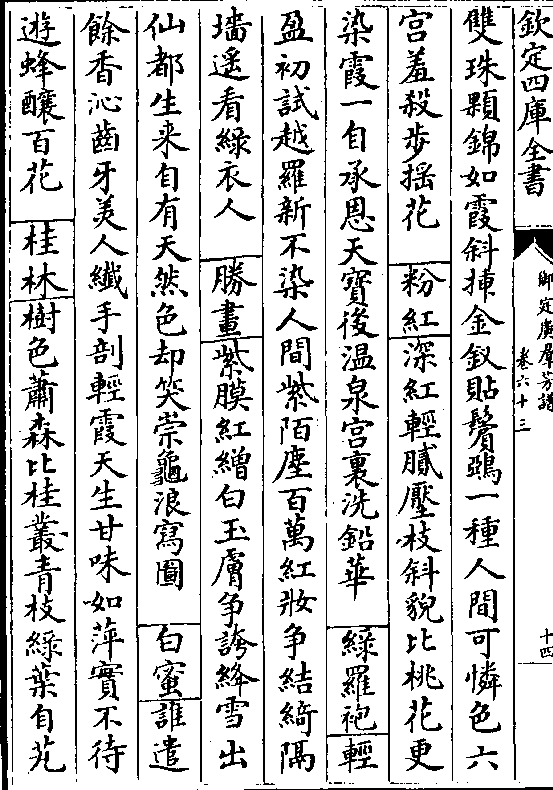 欽定四庫全書
御定廣羣芳譜 卷六十三 十四
雙珠顆錦如霞斜挿金釵貼鬢鵶一種人間可憐色六
宮羞殺步揺花 粉紅 深紅輕膩壓枝斜貌比桃花更
染霞一自承恩天寶後温泉宫裏洗鉛華 綠羅袍 輕
盈初試越羅新不染人間紫陌塵百萬紅妝争結綺隔
墻遥看綠衣人 勝畫 紫膜紅繒白玉膚争誇絳雪出
仙都生来自有天然色却笑崇龜浪寫圖 白蜜 誰遣
餘香沁齒牙美人纖手剖輕霞天生甘味如萍實不待
遊蜂釀百花 桂林 樹色蕭森比桂叢青枝綠葉自芃